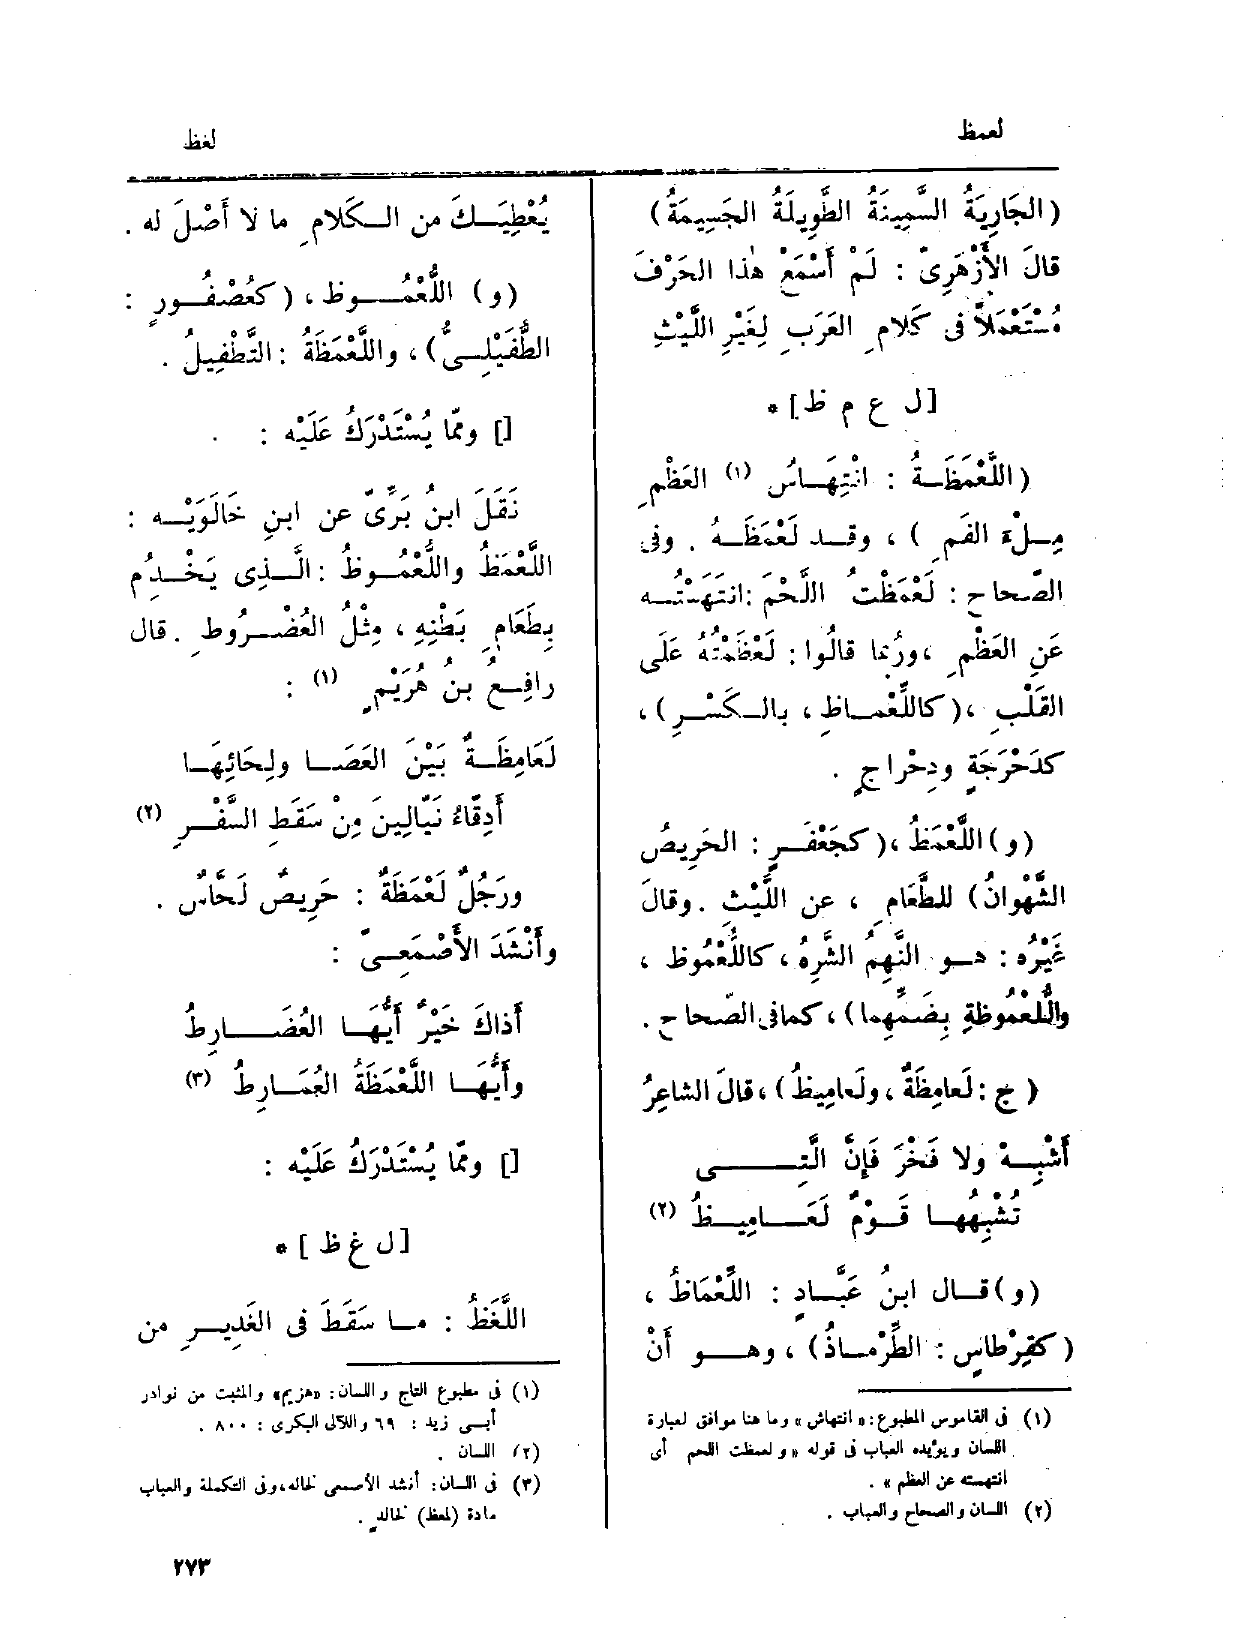 لعمظ
لغظ
(الجَارِيَةُ السَّمِينَةُ الطَّوِيلَةُ الجَسِيمَةُ)
قالَ الأَزْهَرِىّ : لَمْ أَسْمَعْ هٰذا الحَرْفَ
مُسْتَعْمَلاً فى كَلامِ العَرَبِ لِغَيْرِ اللَّيْثِ
[ل ع م ظ] *
(اللَّعْمَظَةُ : انْتِهَاسُ (١) العَظْمِ
مِلْءَ الفَمِ ) ، وقد لَعْمَظَهُ . وفى
الصّحاح : لَعْمَظْتُ اللَّحْمَ : انتَهَسْتُه
عَنِ العَظْمِ ، ورُبما قالُوا : لَعْظَمْتُهُ عَلَى
القَلْبِ ، (كاللِّعْمَاظِ ، بالكَسْرِ) ،
كدَحْرَجَةٍ ودِحْراجٍ .
(و) اللَّعْمَظُ ، (كجَعْفَرٍ : الحَرِيصُ
الشَّهْوانُ) للطَّعَامِ ، عن اللَّيْثِ . وقالَ
غَيْرُه : هو النَّهِمُ الشَّرِهُ ، كاللُّعْمُوظ ،
واللُّعْمُوظةِ بِضَمِّهِما) ، كما فى الصّحاح .
( ج : لَعامِظَةٌ ، ولَعامِيظُ) ، قالَ الشاعِرُ
أَشْبِهْ ولا فَخْرَ فَإِنَّ الَّتِى
تُشْبِهُها قَوْمٌ لَعَامِيظُ (٢)
(و) قال ابنُ عَبَّادٍ : اللِّعْمَاظُ ،
(كقِرْطاسٍ : الطِّرْمَاذُ) ، وهو أَنْ
(١) فى القاموس المطبوع : « انتهاش » وما هنا موافق لعبارة
اللسان ويؤيده العباب فى قوله « ولعمظت اللحم أى
انتهسته عن العظم » .
(٢) اللسان والصحاح والعباب .
يُعْطِيَكَ من الكَلامِ ما لا أَصْلَ له .
(و) اللُّعْمُوظ ، (كعُصْفُورٍ :
الطُّفَيْلِىُّ) ، واللَّعْمَظَةُ : التَّطْفِيلُ .
[] وممّا يُسْتَدْرَكُ عَلَيْه :
نَقَلَ ابنُ بَرِّىّ عن ابنِ خَالَوَيْه :
اللَّعْمَظُ واللُّعْمُوظُ : الَّذِى يَخْدُم
بِطَعَامِ بَطْنِهِ ، مِثْلُ العُضْرُوطِ . قال
رافِعُ بنُ هُرَيْمٍ (١) :
لَعَامِظَةٌ بَيْنَ العَصَا ولِحَائِهَا
أَدِقَّاءُ نَيَّالِينَ مِنْ سَقَطِ السَّفْرِ (٢)
ورَجُلٌ لَعْمَظَةٌ : حَرِيصٌ لَحَّاسٌ .
وأَنْشَدَ الأَصْمَعِىّ :
أَذاكَ خَيْرٌ أَيُّهَا العُضَارِطُ
وأَيُّهَا اللَّعْمَظَةُ العُمَارِطُ (٣)
[] وممّا يُسْتَدْرَكُ عَلَيْه :
[ل غ ظ] *
اللَّغَظُ : ما سَقَطَ فى الغَدِيرِ من
(١) فى مطبوع التاج واللسان : «هزيم» والمثبت من نوادر
أبى زيد : ٦٩ واللآلى البكرى : ٨٠٠ .
(٢) اللسان .
(٣) فى اللسان : أنشد الأصمعى لخاله ، وفى التكملة والعباب
مادة (لمعظ) لخالدٍ .
٢٧٣